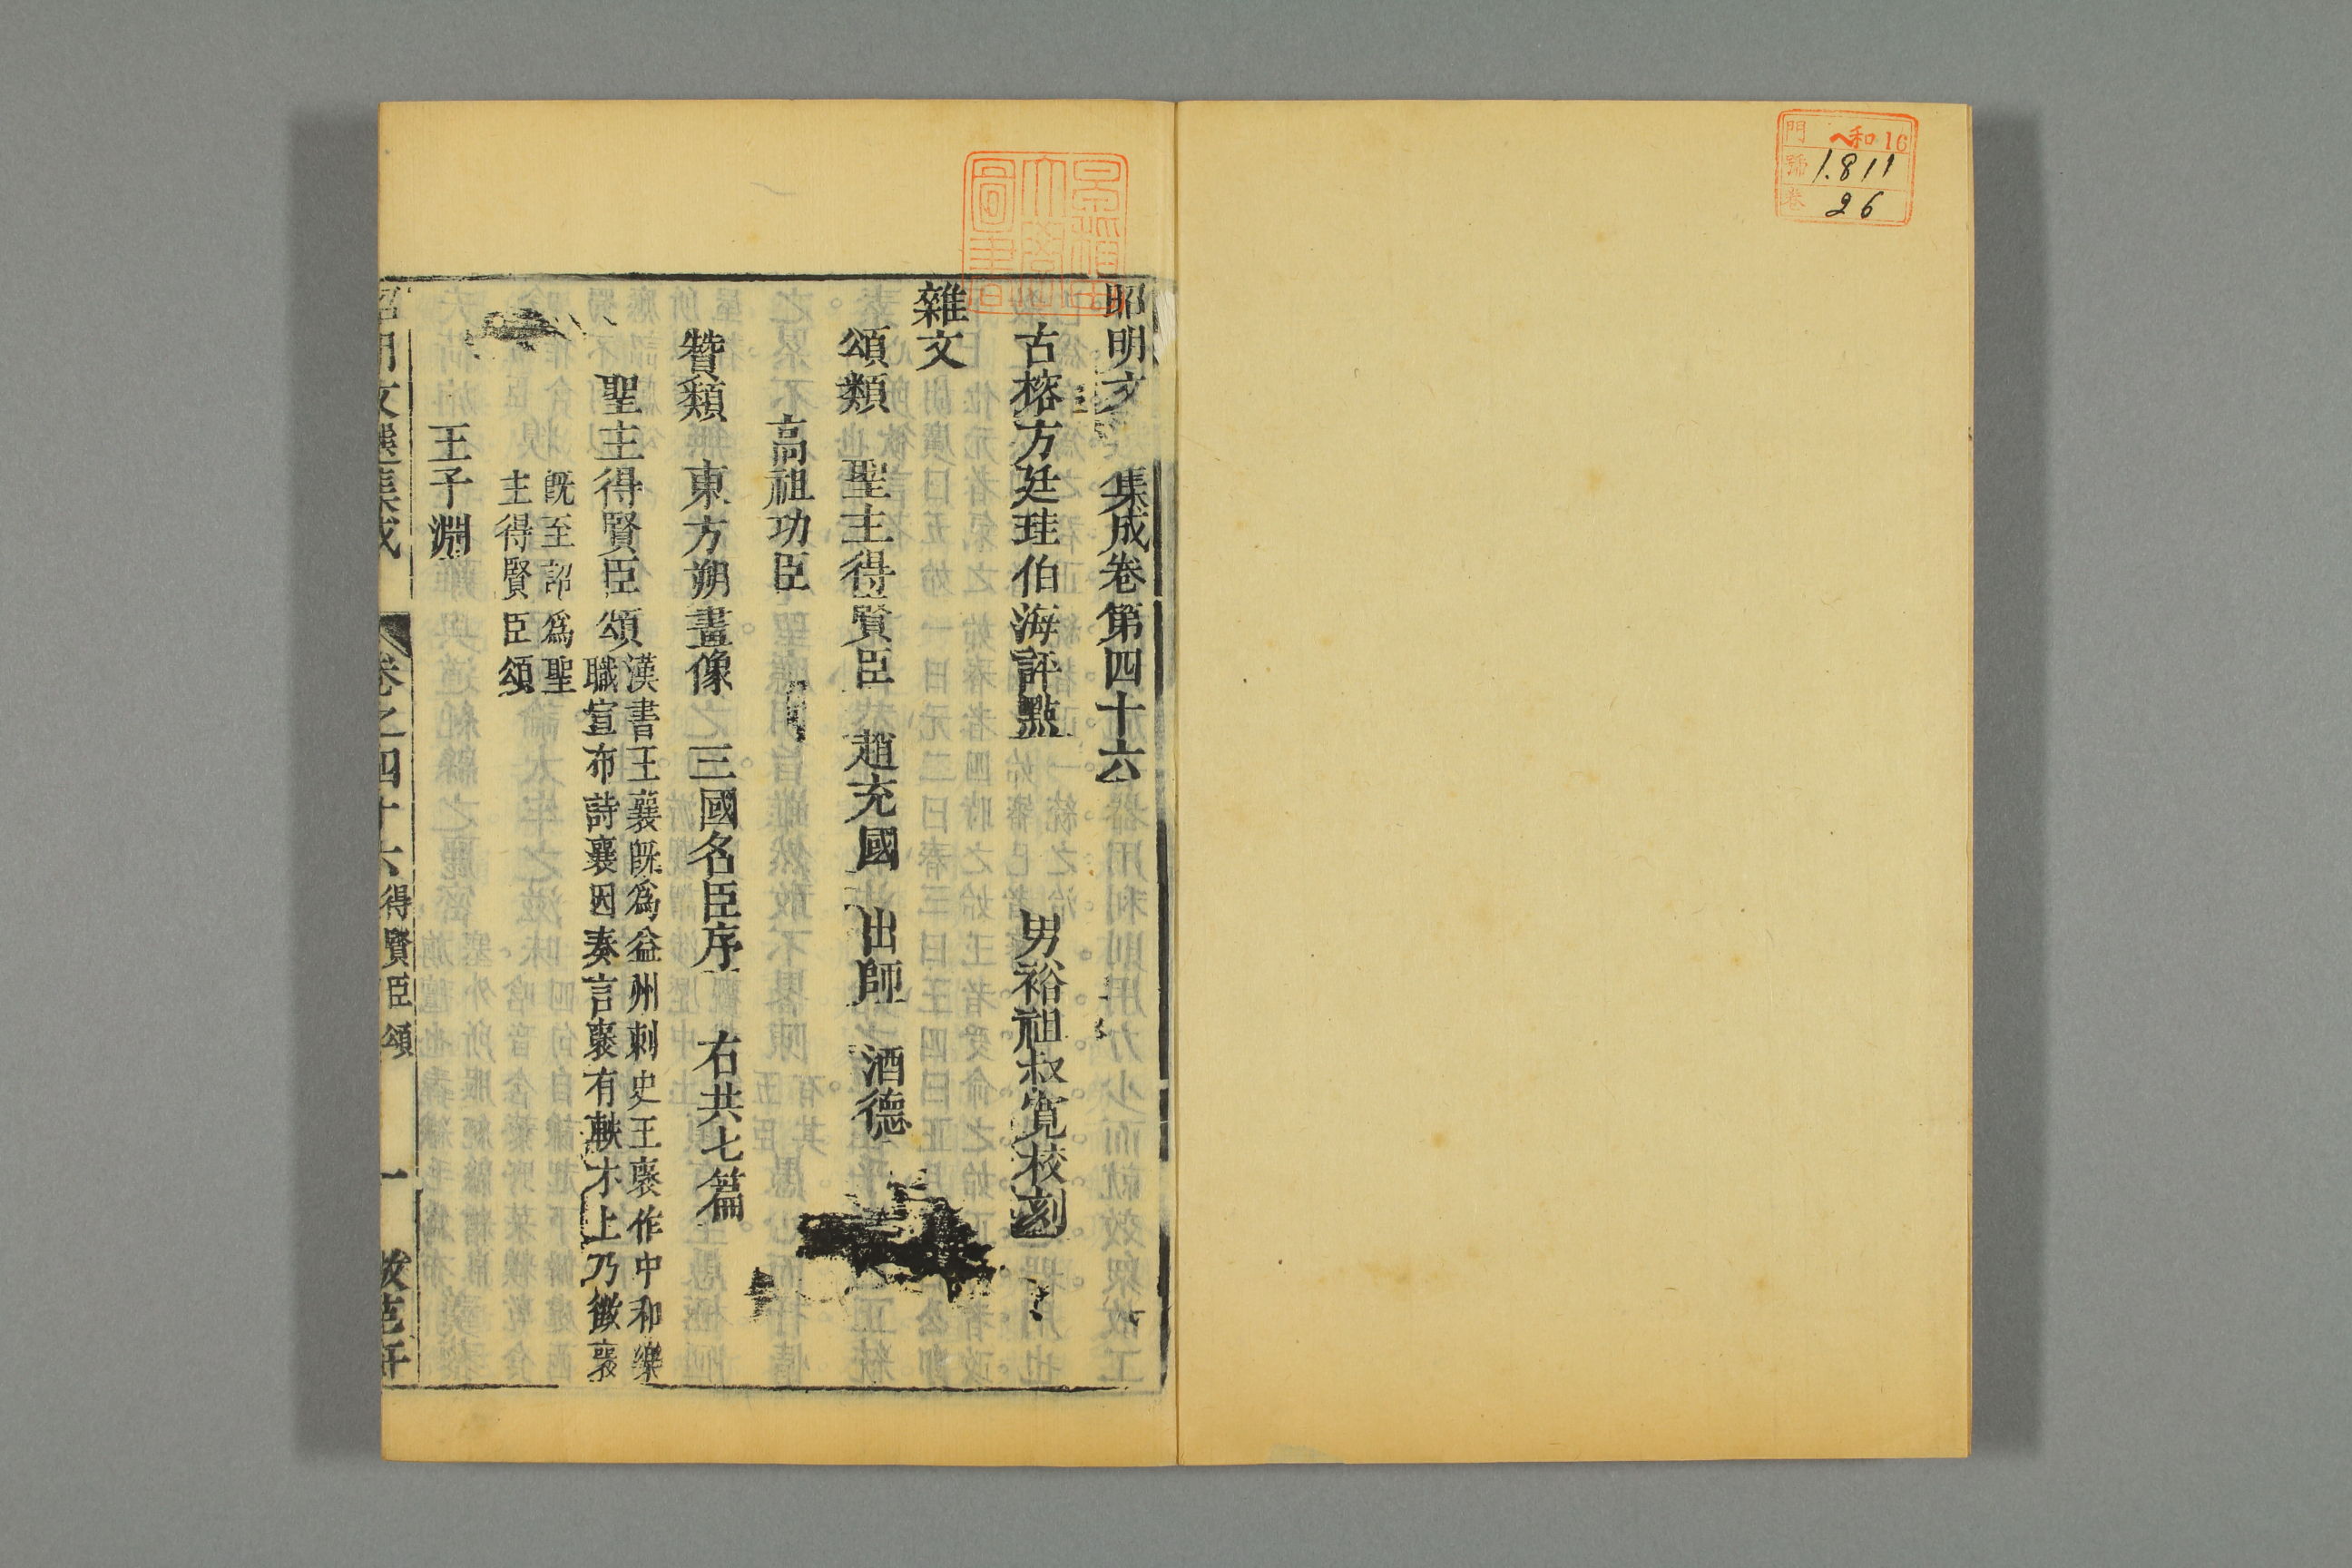 門 へ和16
號 1.811
卷 26
昭明文 集成卷第四十六
古榕方廷珪伯海評點 男裕祖叔寬校刻
雜文
頌類 聖主得賢臣 趙充國 出師 酒德
高祖功臣
贊類 東方朔畫像 三國名臣序 右共七篇
聖主得賢臣頌 漢書王襄既為益州刺史王襃作中和樂
職宣布詩襄因奏言襃有軼才上乃徵襃
既至詔為聖
主得賢臣頌
王子淵
昭明文選集成 卷之四十六 得賢臣頌 一